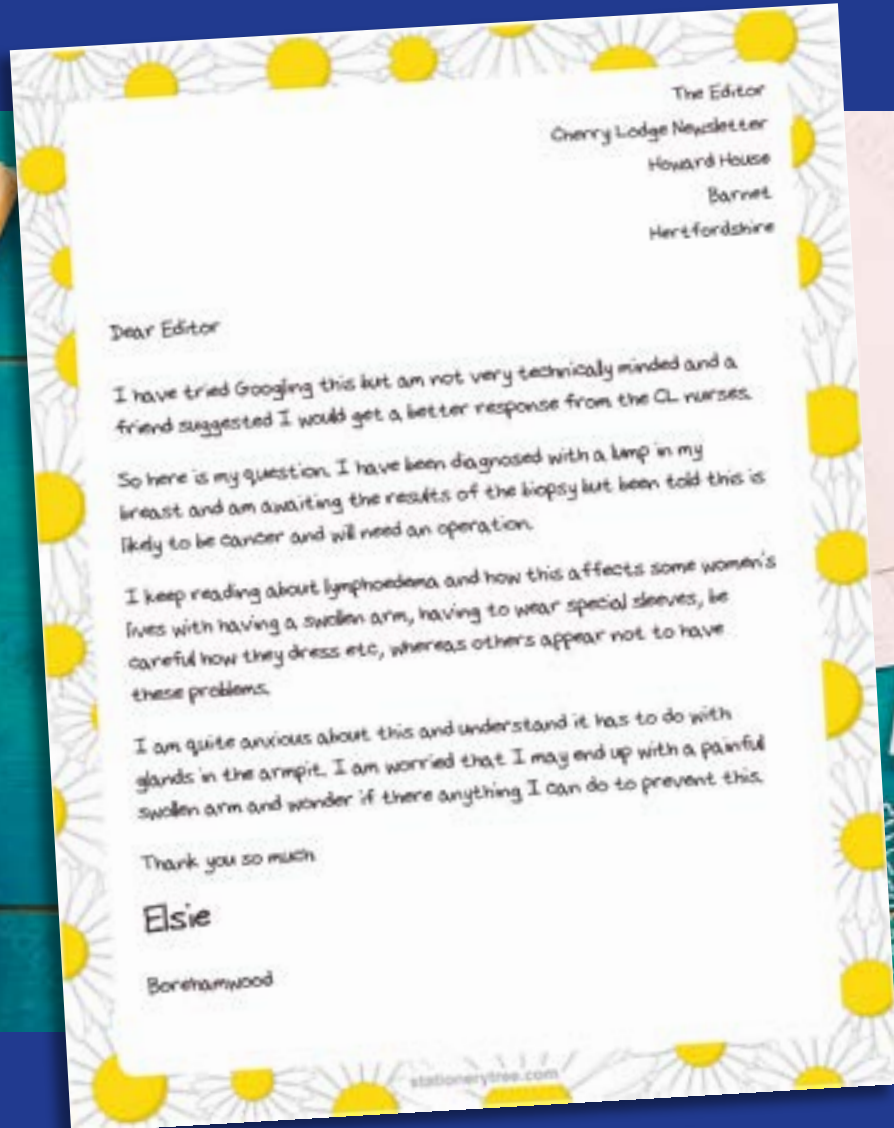 The Editor
Cherry Lodge Newsletter
Howard House
Barnet
Hertfordshire
Dear Editor
I have tried Googling this but am not very technically minded and a
friend suggested I would get a better response from the CL nurses.
So here is my question. I have been diagnosed with a lump in my
breast and am awaiting the results of the biopsy but been told this is
likely to be cancer and will need an operation.
I keep reading about lymphoedema and how this affects some women's
lives with having a swollen arm, having to wear special sleeves, be
careful how they dress etc, whereas others appear not to have
these problems.
I am quite anxious about this and understand it has to do with
glands in the armpit. I am worried that I may end up with a painful
swollen arm and wonder if there anything I can do to prevent this.
Thank you so much
Elsie
Borehamwood
stationerytree.com